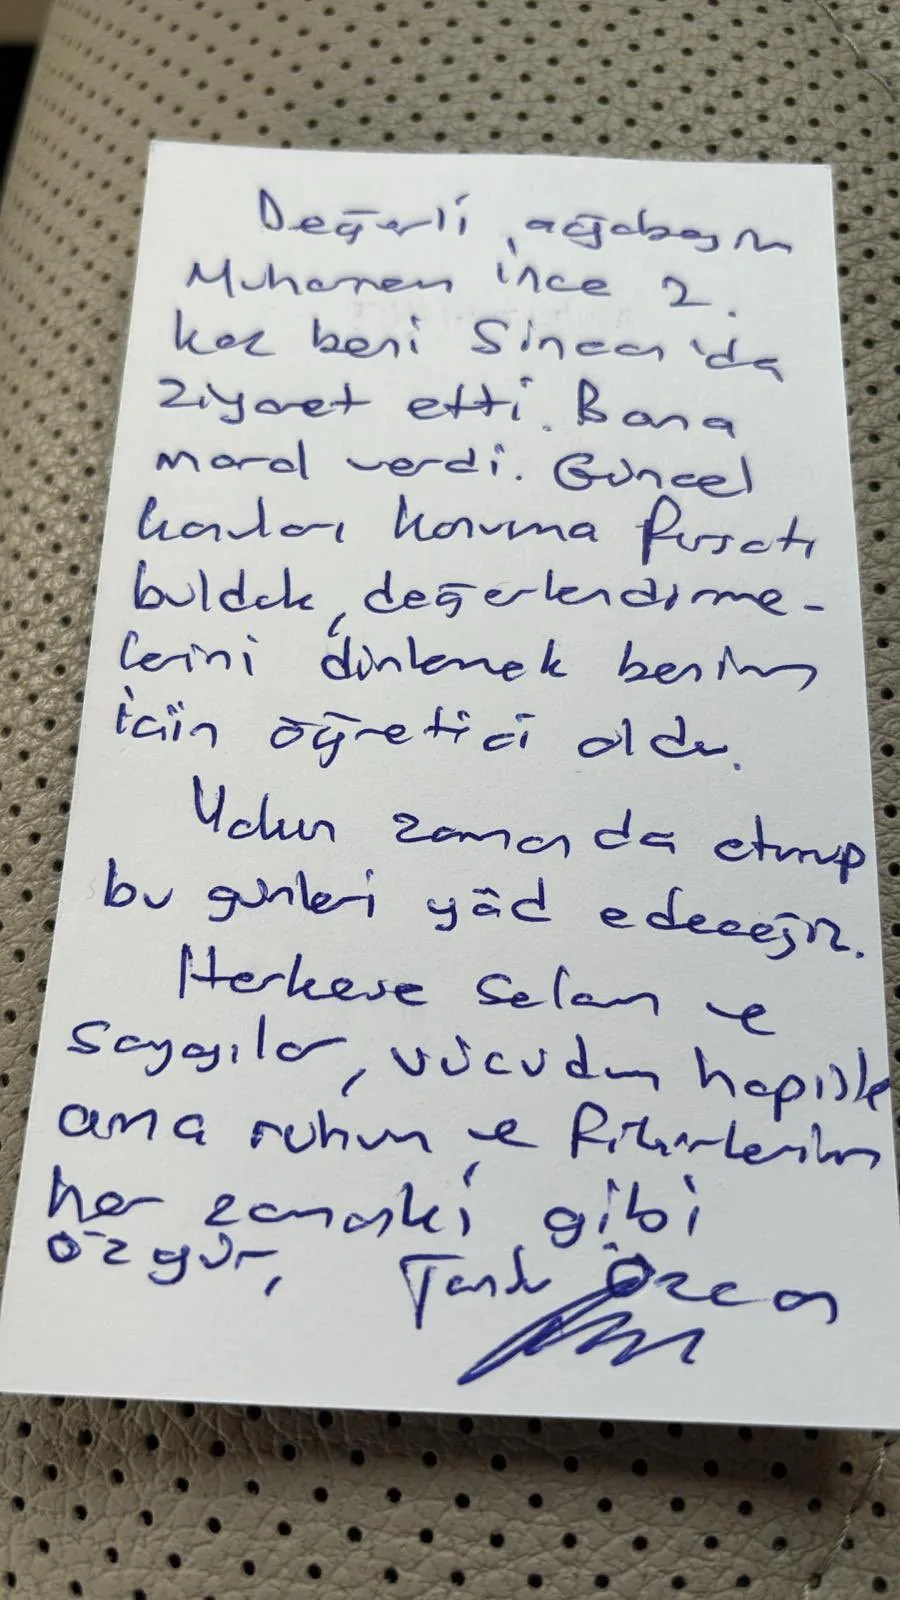 Değerli ağabeyim
Muharrem ince 2.
kez beni Sincan'da
ziyaret etti. Bana
moral verdi. Güncel
konuları konuşma fırsatı
bulduk, değerlendirme-
lerini dinlemek benim
için öğretici oldu.
Yakın zamanda oturup
bu günleri yâd edeceğiz.
Herkese Selam ve
Saygılar, vücudum hapiste
ama ruhum ve fikirlerim
her zamanki gibi
özgür, Tanju Özcan